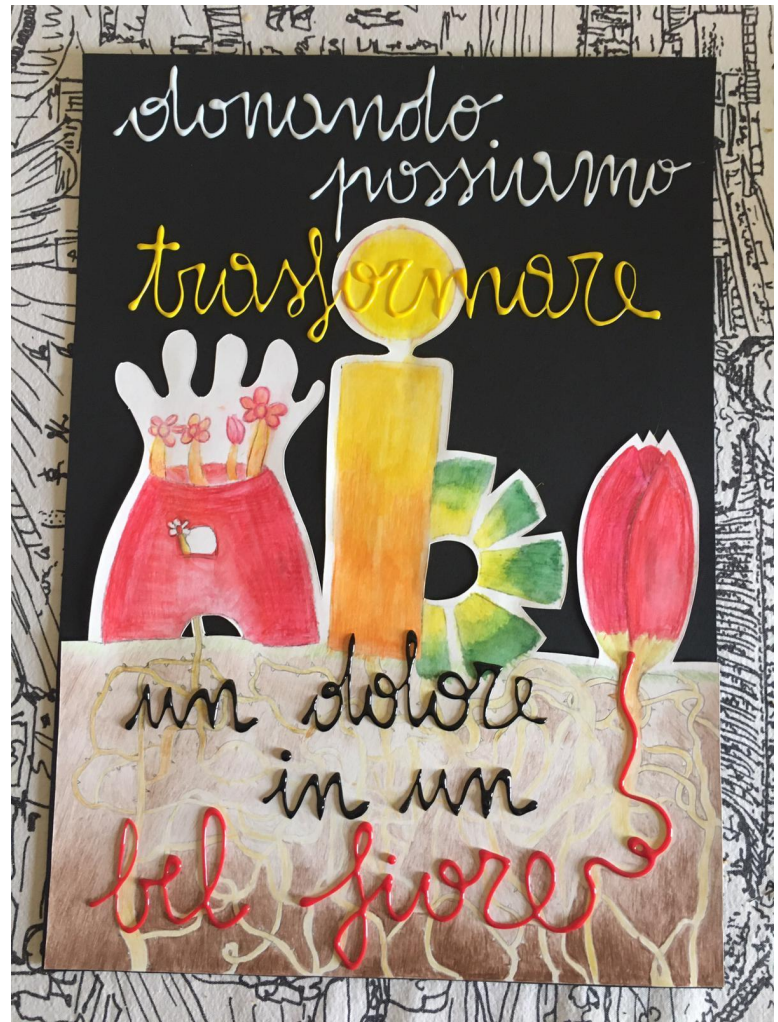 donando
possiamo
trasformare
AIDO
un dolore
in un
bel fiore